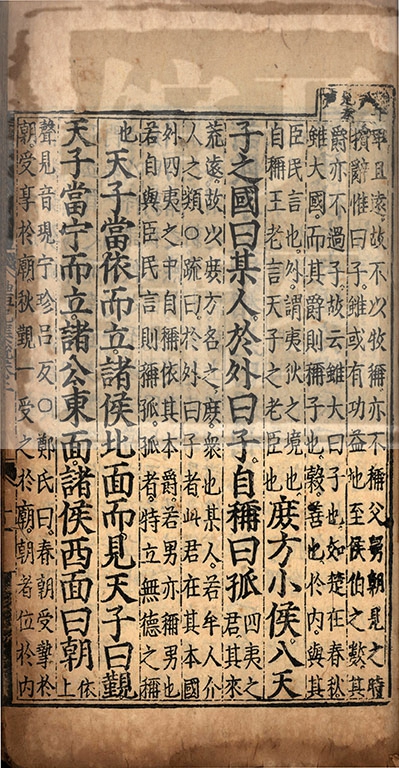 卑且遠故不以牧稱亦不稱父舅朝見之時
擯辭惟曰子雖或有功益地至侯伯之數其
爵亦不過子故云雖大曰子也如楚在春秋
雖大國而其爵則稱子也穀善也於内與其
臣民言也外謂夷狄之境也
自稱王老言天子之老臣也
庶方小侯入天
子之國曰某人於外曰子自稱曰孤
四夷之
君其來
荒遠故以庶方名之庶衆也某人若牟人介
人之類○疏曰於外曰子者此君在其本國
外四夷之中自稱依其本爵若男亦稱男也
若自與臣民言則稱孤孤者特立無德之稱
也
天子當依而立諸侯北面而見天子曰覲
天子當宁而立諸公東面諸侯西面曰朝
依
上
聲見音現宁珍吕反○鄭氏曰春朝受摯於
朝受享於廟秋覲一受之於廟朝者位於内